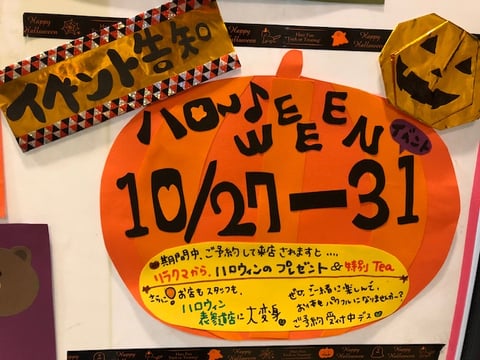 Happy Halloween
Have Fun "Trick or Treating"
Happy Halloween
イベント告知
ハロウィン♪
WEEEN
イベント
10/27ー31
期間中、ご予約して来店されますと....
リラクマから、ハロウィンのプレゼント & 特別 Tea
さらに! お店もスタッフも、
ハロウィン
表参道店に大変身
ぜひ、ご一緒に楽しんで、
お心もパワフルになりませんかー?
ご予約受付中デス
Happy Halloween